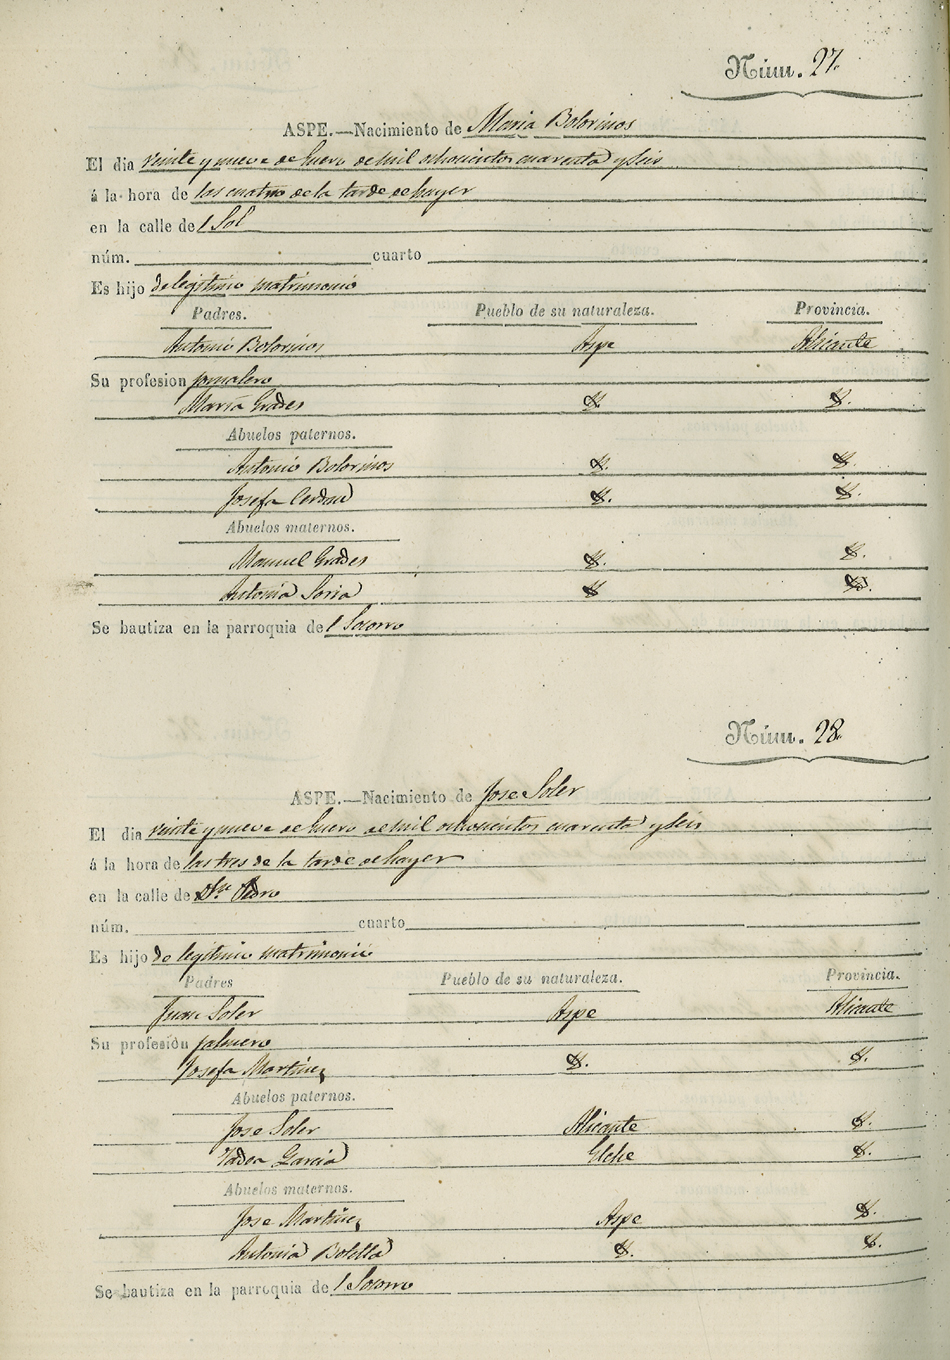 Núm. 27.
ASPE.—Nacimiento de Maria Bolorinos
El dia veinte y nueve de Enero de mil ochocientos cuarenta y seis
á la hora de las cuatro de la tarde de hayer
en la calle del Sol
núm. cuarto
Es hijo de legitimo matrimonio
Padres. Pueblo de su naturaleza. Provincia.
Antonio Bolorinos Aspe Alicante
Su profesion jornalero
Maria Grades
Abuelos paternos.
Antonio Bolorinos
Josefa Cerdan
Abuelos maternos.
Manuel Grades
Antonia Soria
Se bautiza en la parroquia del Socorro
Núm. 28.
ASPE.—Nacimiento de Jose Soler
El dia veinte y nueve de Enero de mil ochocientos cuarenta y seis
á la hora de las tres de la tarde de hayer
en la calle de Pedro
núm. cuarto
Es hijo de legitimo matrimonio
Padres Pueblo de su naturaleza. Provincia.
Juan Soler Aspe Alicante
Su profesión palmero
Josefa Martinez
Abuelos paternos.
Jose Soler Alicante
Tadea Garcia Elche
Abuelos maternos.
Jose Martinez Aspe
Antonia Botella
Se bautiza en la parroquia del Socorro